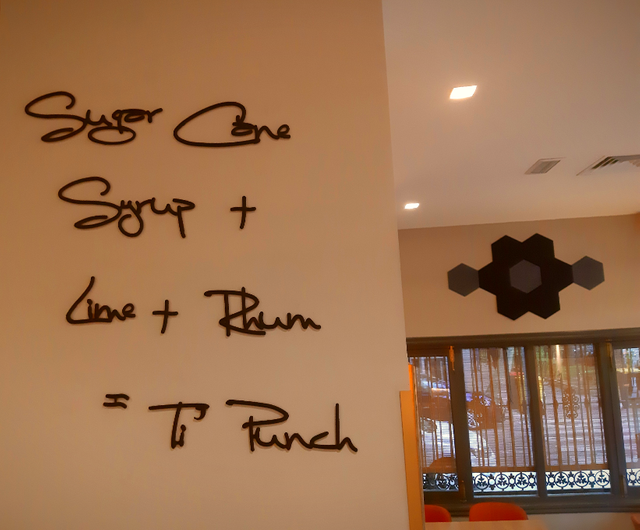 Sugar Cane
Syrup +
Lime + Rhum
= Ti' Punch